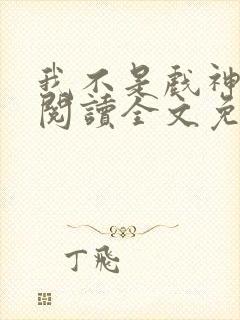 我不是戲神
閱讀全文免
丁飛